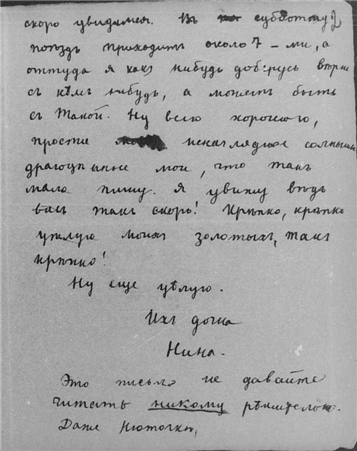 скоро увидимся. Въ субботу 2
поѣздъ приходитъ около 7-ми, а
оттуда я какъ нибудь доберусь
съ кѣмъ нибудь, а можетъ быть
съ Таней. Ну всего хорошаго,
прости ненаглядное солнышко
драгоцѣнные мои, что такъ
мало пишу. Я увижу вѣдь
васъ такъ скоро! Крѣпко, крѣпко
цѣлую моихъ золотыхъ, такъ
крѣпко!
Ну еще цѣлую.
Ихъ дочка
Нина.
Это письмо не давайте
читать никому рѣшительно.
Даже Нюточкѣ,